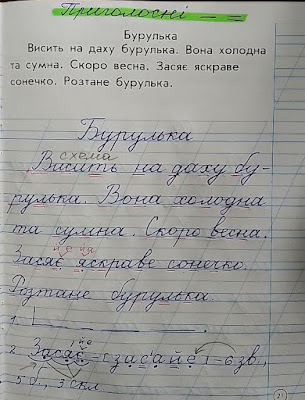 Приголосні — =
Бурулька
Висить на даху бурулька. Вона холодна
та сумна. Скоро весна. Засяє яскраве
сонечко. Розтане бурулька.
Бурулька
схема
Висить на даху бу-
рулька. Вона холодна
та сумна. Скоро весна.
Засяє яскраве сонечко.
Розтане бурулька.
1.
2. Засяє – [ ] – 6 зв.,
5 б., 3 скл.
21